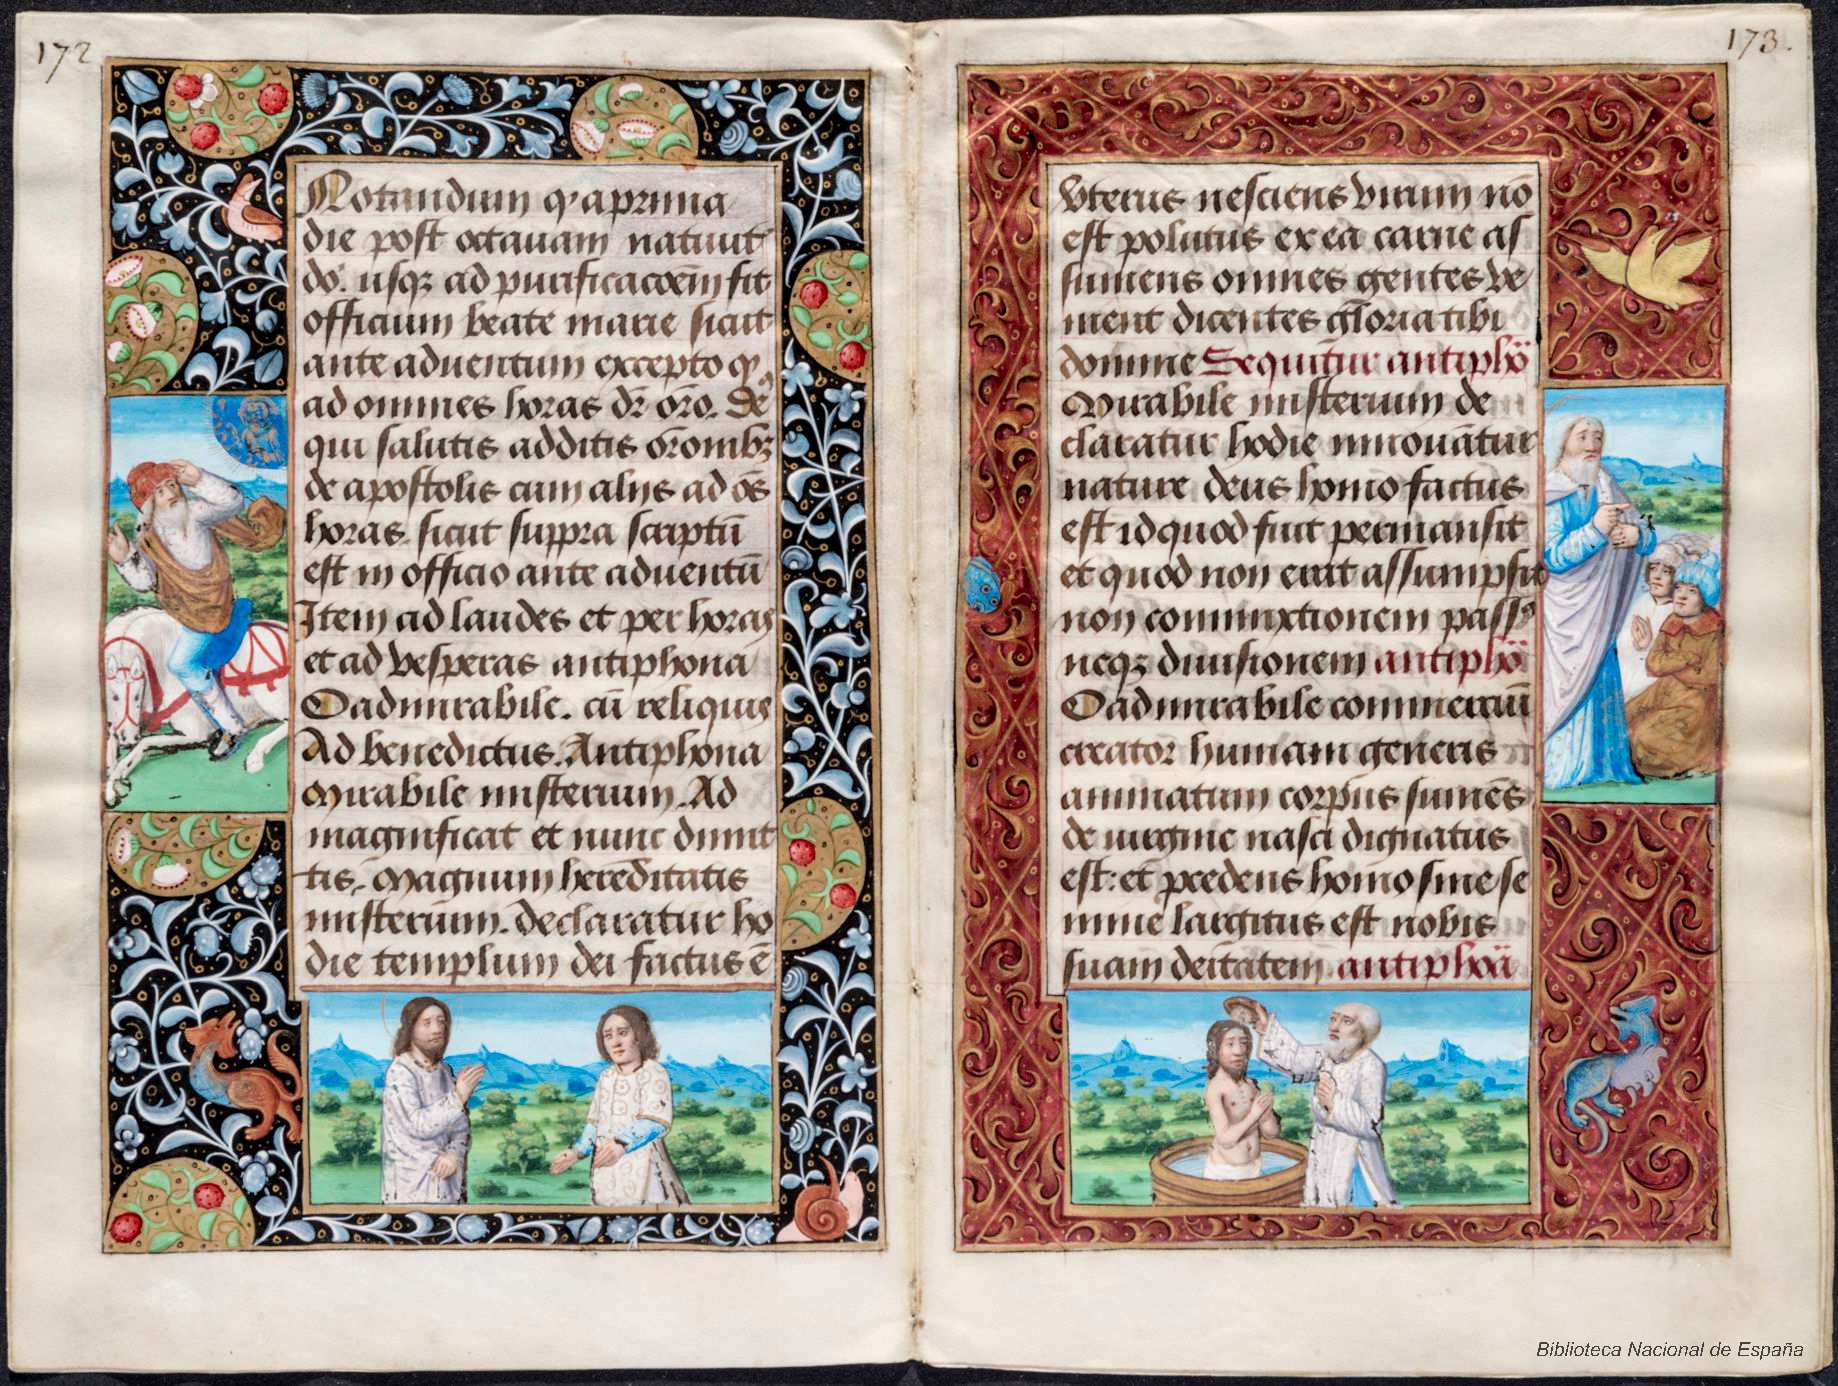 172
Notandum qꝰ a prima
die post octauam natiuit
do. usqꝫ ad purificacoēm fit
officium beate marie sicut
ante aduentum excepto qꝰ
ad omnes horas dr̄ or̄o. Deꝰ
qui salutis additis or̄ombꝫ
de apostolis cum alijs ad ōs
horas. sicut suppra scriptū
est in officio ante aduentū
Item ad laudes et per horas
et ad vesperas antiphona
O admirabile. cū reliquis
Ad benedictus. Antiphona
Mirabile misterium. Ad
magnificat et nunc dimit
tis. Magnum hereditatis
misterium. declaratur ho
die templum dei factus ē
173.
Vterus nesciens virum nō
est polutus ex ea carne as
sumens omnes gentes ve
nient dicentes gloria tibi
domine Sequitur antiphō
Mirabile misterium de
claratur hodie innouātur
nature deus homo factus
est id quod fuit permansit
et quod non erat assumpsit
non commixtionem passꝰ
neqꝫ diuisionem antiphō
O admirabile commerciū
creator humani generis
animatum corpus sumēs
de uirgine nasci dignatus
est: et procedens homo sine se
mine largitus est nobis
suam deitatem. antiphōa
Biblioteca Nacional de España